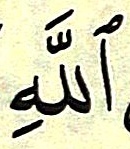 ٱللَّهِ